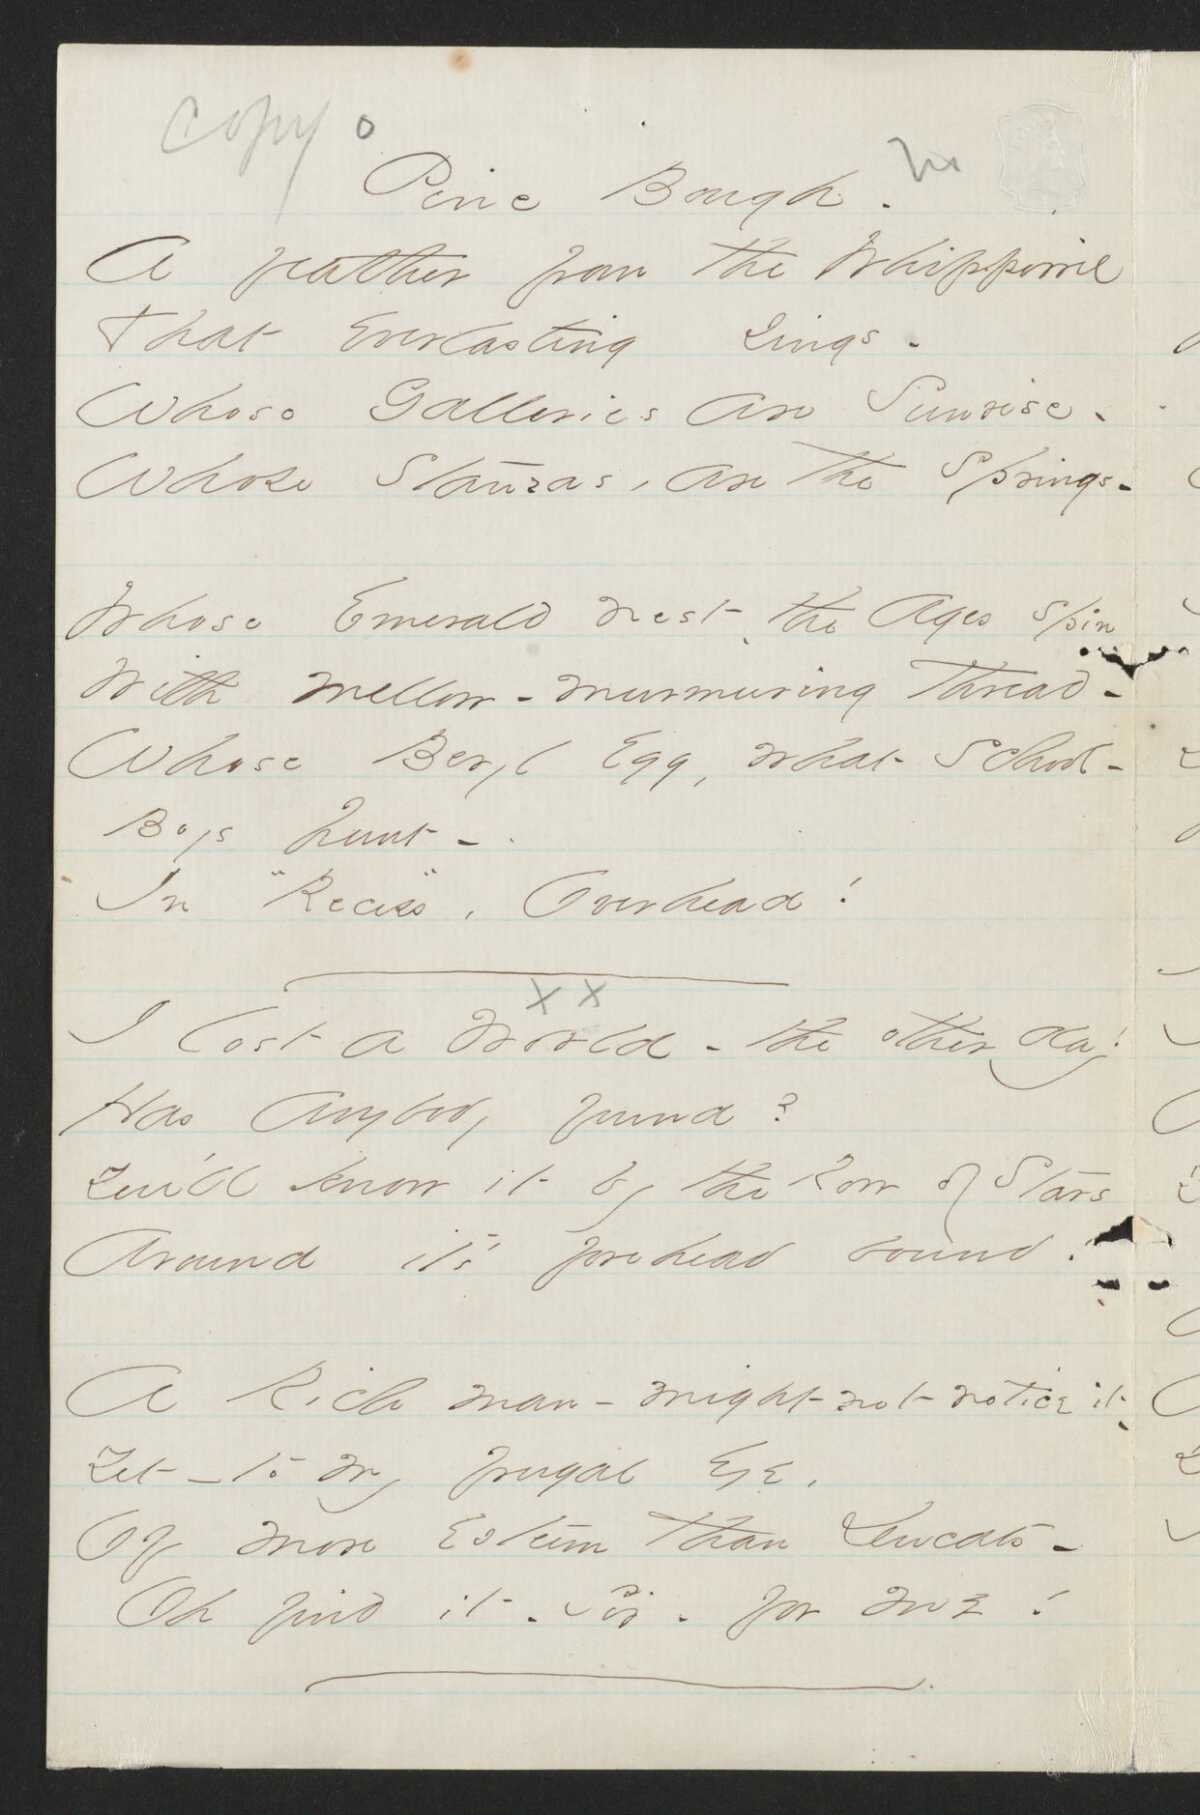 copy o
Pine Bough.
A feather from the Whippowil
That Everlasting sings -
Whose Galleries are Sunrise -
Whose Stanzas, are the Springs -
Whose Emerald nest the Ages spin
With mellow - murmuring Thread -
Whose Beryl Egg, what School-
Boys hunt -
In "Recess", Overhead!
x x
I lost a World - the other day!
Has Anybody found?
You'll know it by the Row of Stars
Around it's forehead bound.
A Rich man - might not notice it -
Yet - to my frugal Eye,
Of more Esteem than Ducats -
Oh find it - Sir - for me!